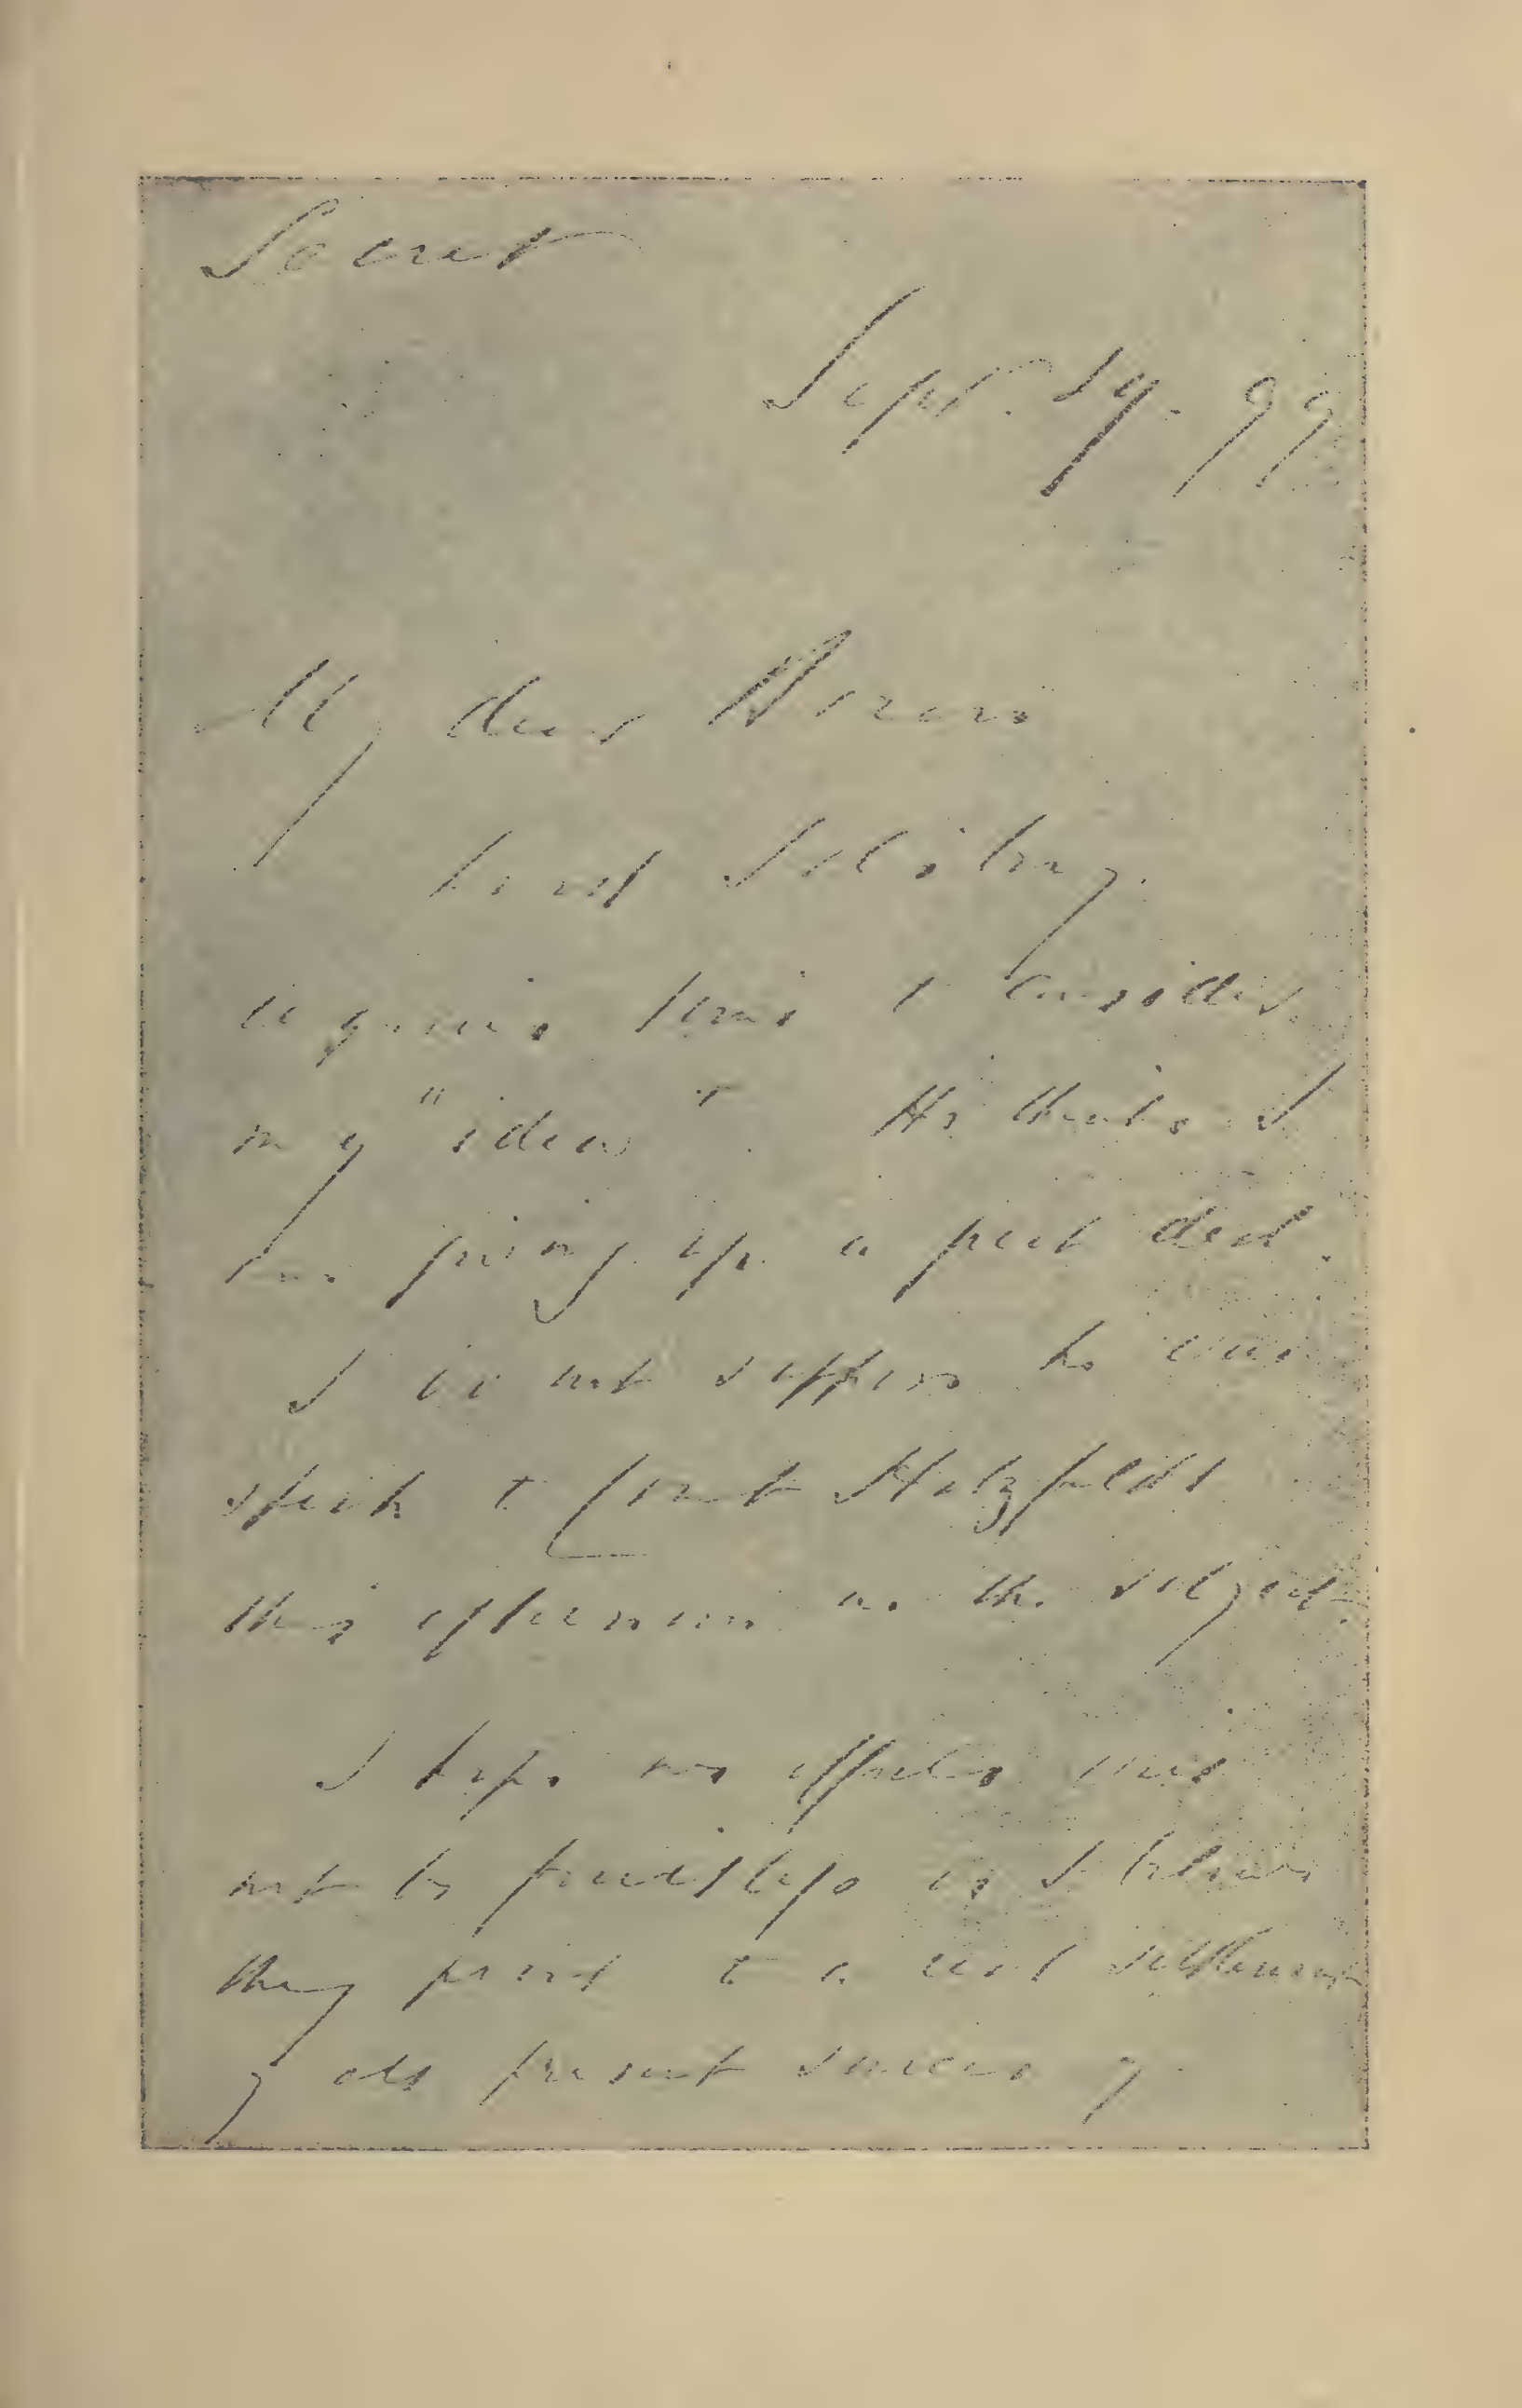 Secret
Sept. 19. 99
My dear Baron
Lord Salisbury
requires time to consider
my "ideas". He thinks I
am giving up a great deal.
I do not suppose he will
speak to Count Hatzfeldt
this afternoon on the subject.
I hope my efforts will
not be as I believe
they point to a real settlement
of all present sources of